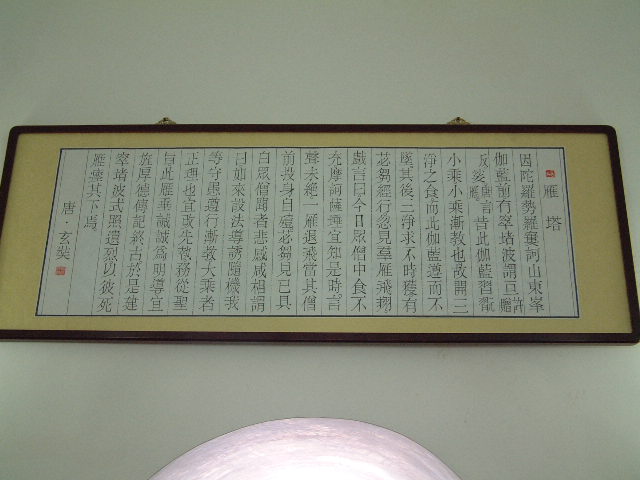 雁塔
因陀羅勢羅窶訶山東峯
伽藍前有窣堵波謂亘許贈
反娑唐言雁昔此伽藍習翫
小乘小乘漸教也故開三
淨之食而此伽藍遵而不
墜其後三淨求不時獲有
苾芻經行忽見羣雁飛翔
戲言曰今日眾僧中食不
充摩訶薩埵宜知是時言
聲未絕一雁退飛當其僧
前投身自殪苾芻見已具
白眾僧聞者悲感咸相謂
曰如來設法導誘隨機我
等守愚遵行漸教大乘者
正理也宜改先執務從聖
旨此雁垂誡誠為明導宜
旌厚德傳記終古於是建
窣堵波式照遺烈以彼死
雁瘞其下焉
唐·玄奘